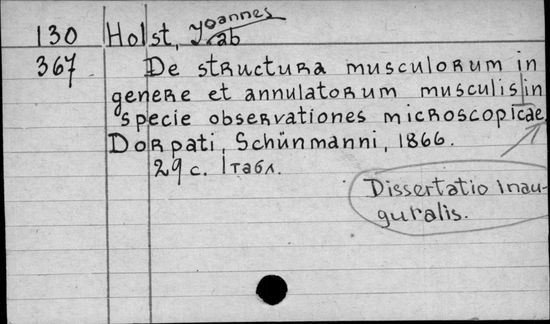 130 Holst, Yoannes
ab
367 De structura musculorum in
genere et annulatorum musculis in
specie observationes microscopicae
Dorpati, Schünmanni, 1866.
29 с. 1 табл.
Dissertatio inau-
guralis.